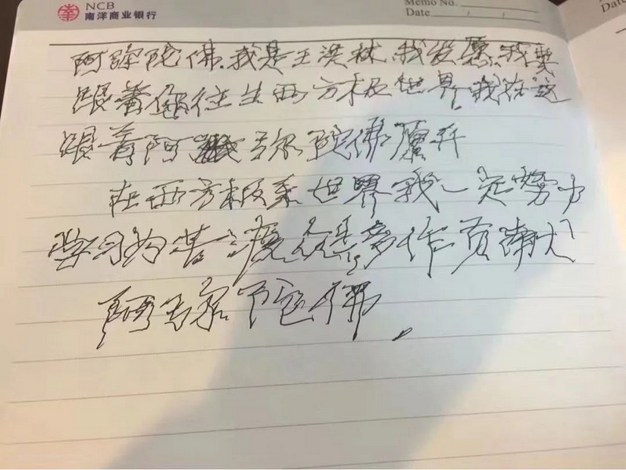 NCB
南洋商业银行
Memo No.
Date / /
Da
阿弥陀佛.我是王洪林.我发愿.我要
跟着您往生西方极世界,我
跟着阿弥陀佛
在西方极乐世界我一定努力
学习为苦众多作贡献
阿弥陀佛.